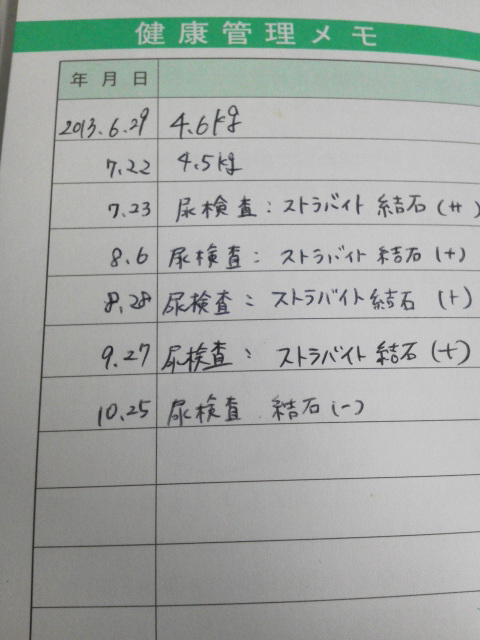 健康管理メモ
年月日
2013.6.29 4.6kg
7.22 4.5kg
7.23 尿検査:ストラバイト結石(++)
8.6 尿検査:ストラバイト結石(+)
8.28 尿検査:ストラバイト結石(+)
9.27 尿検査:ストラバイト結石(+)
10.25 尿検査 結石(-)